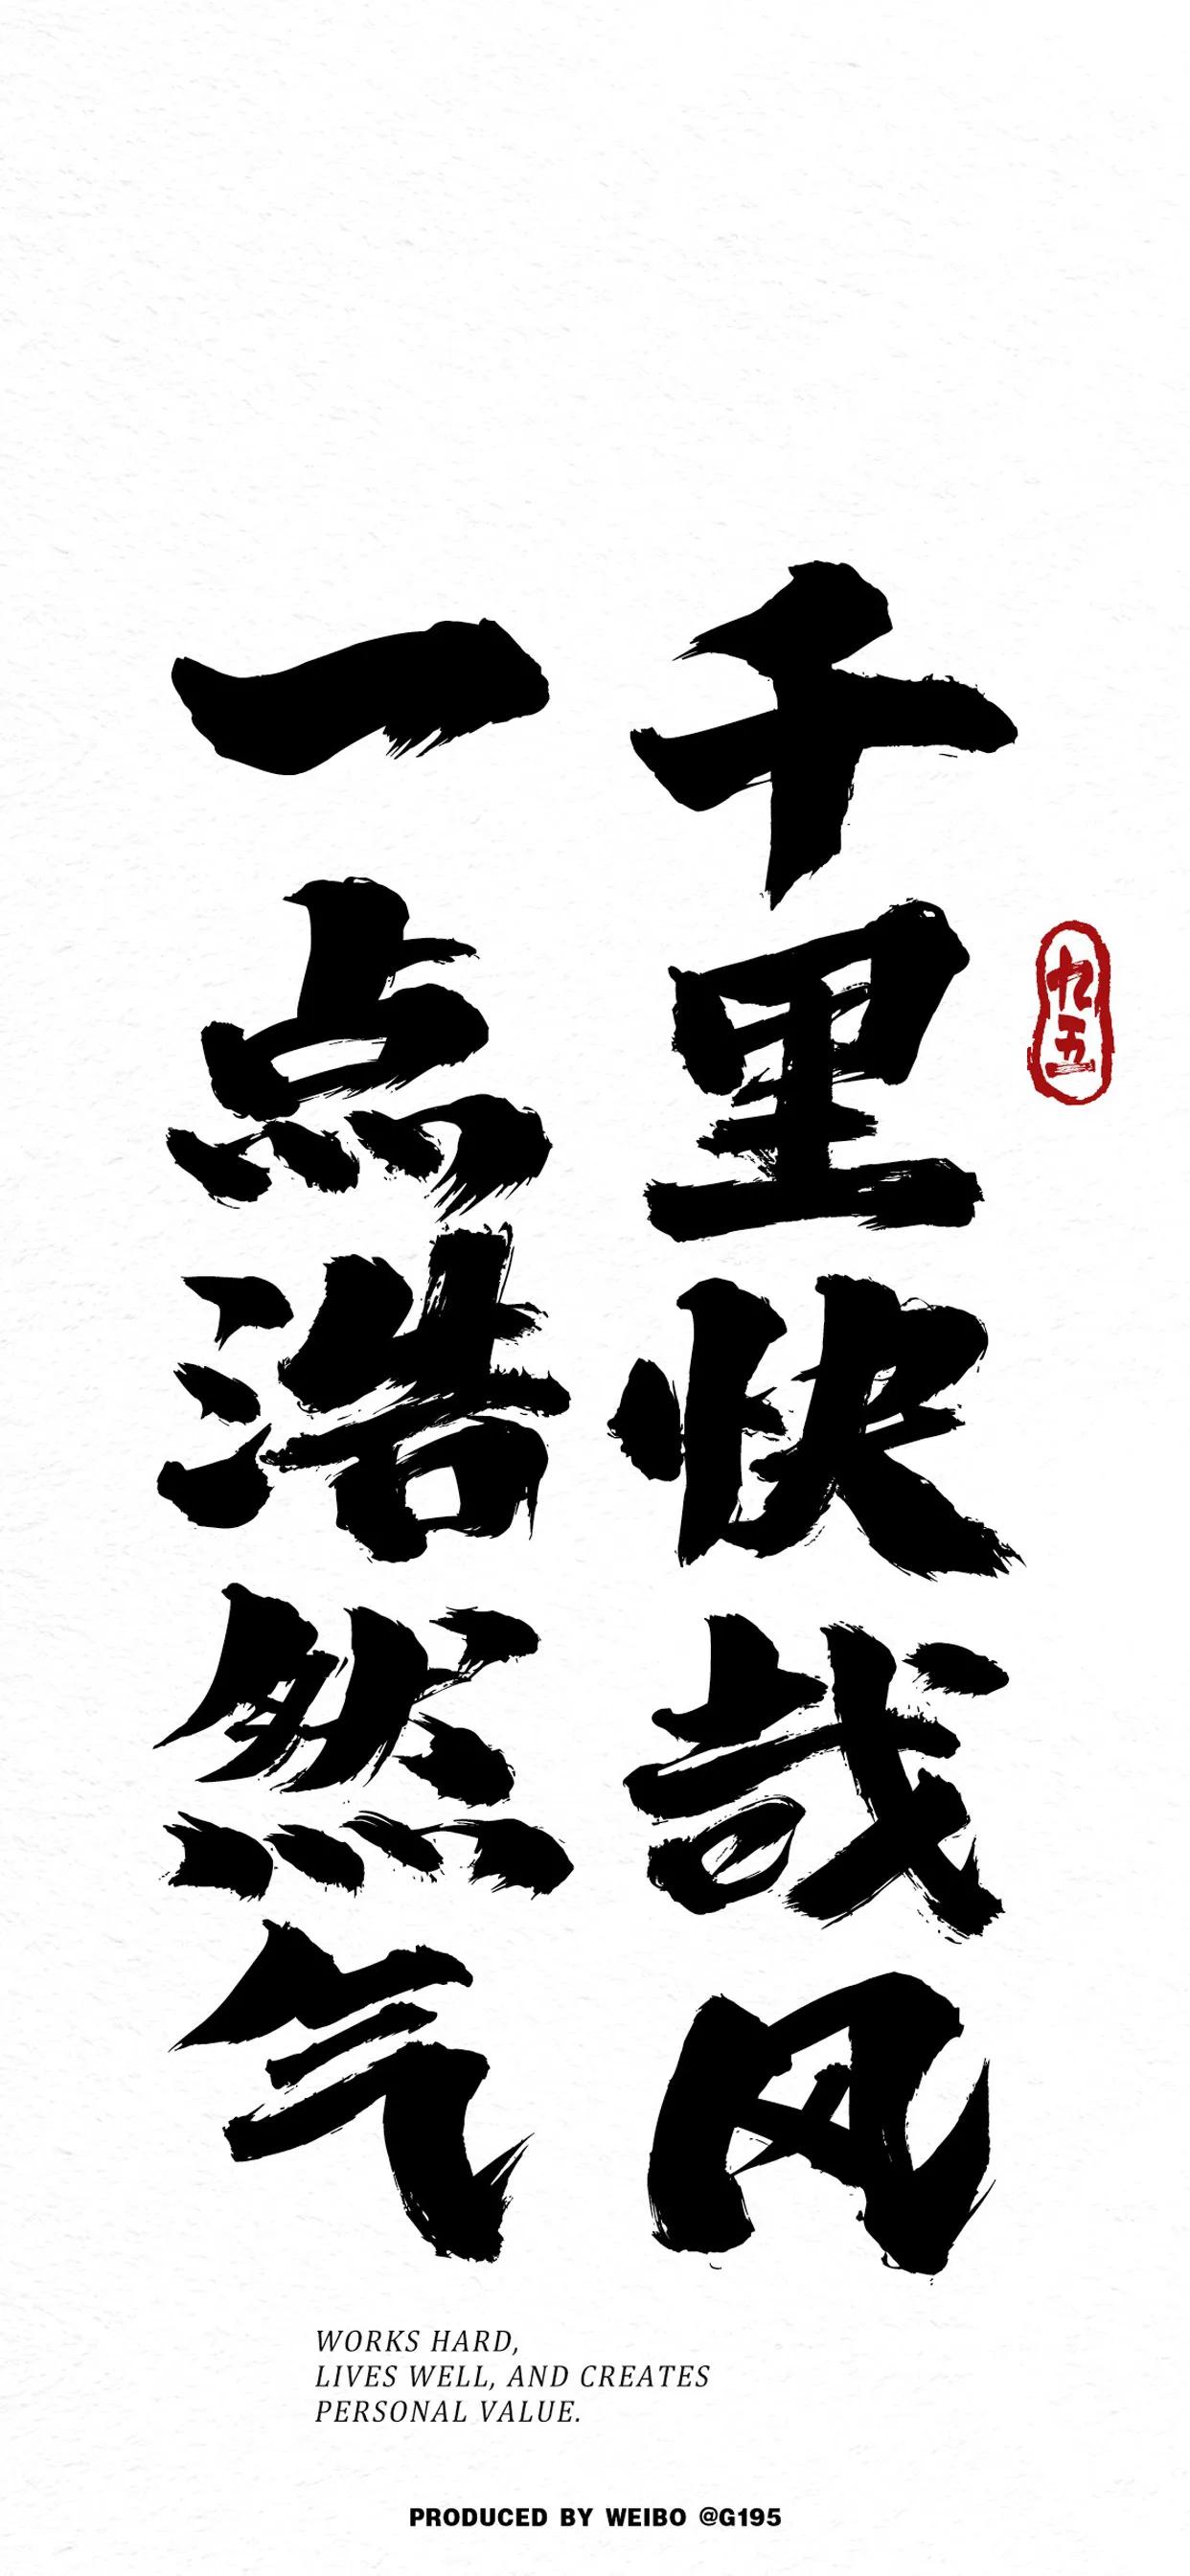 千里快哉风
一点浩然气
九五
WORKS HARD,
LIVES WELL, AND CREATES
PERSONAL VALUE.
PRODUCED BY WEIBO @G195